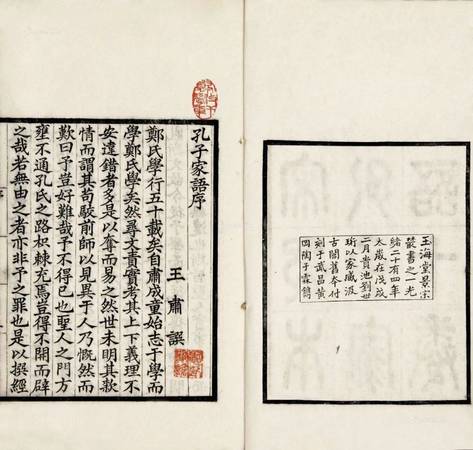 玉海堂景宋
叢書之一光
緒二十有四年
太歲在戊戌
二月貴池劉世
珩以家臧汲
古閣舊本付
刻于武昌黃
岡陶子霖鐫
孔子家語序
王肅譔
鄭氏學行五十載矣自肅成童始志于學而
學鄭氏學矣然尋文責實考其上下義理不
安違錯者多是以奪而易之然世未明其款
情而謂其苟駮前師以見異于人乃慨然而
歎曰予豈好難哉予不得已也聖人之門方
壅不通孔氏之路枳棘充焉豈得不開而辟
之哉若無由之者亦非予之罪也是以撰經